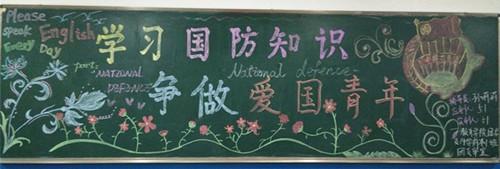 Please
speak English
Every Day
学习国防知识
part:
NATIONAL
DEFENCE
National defence
争做爱国青年